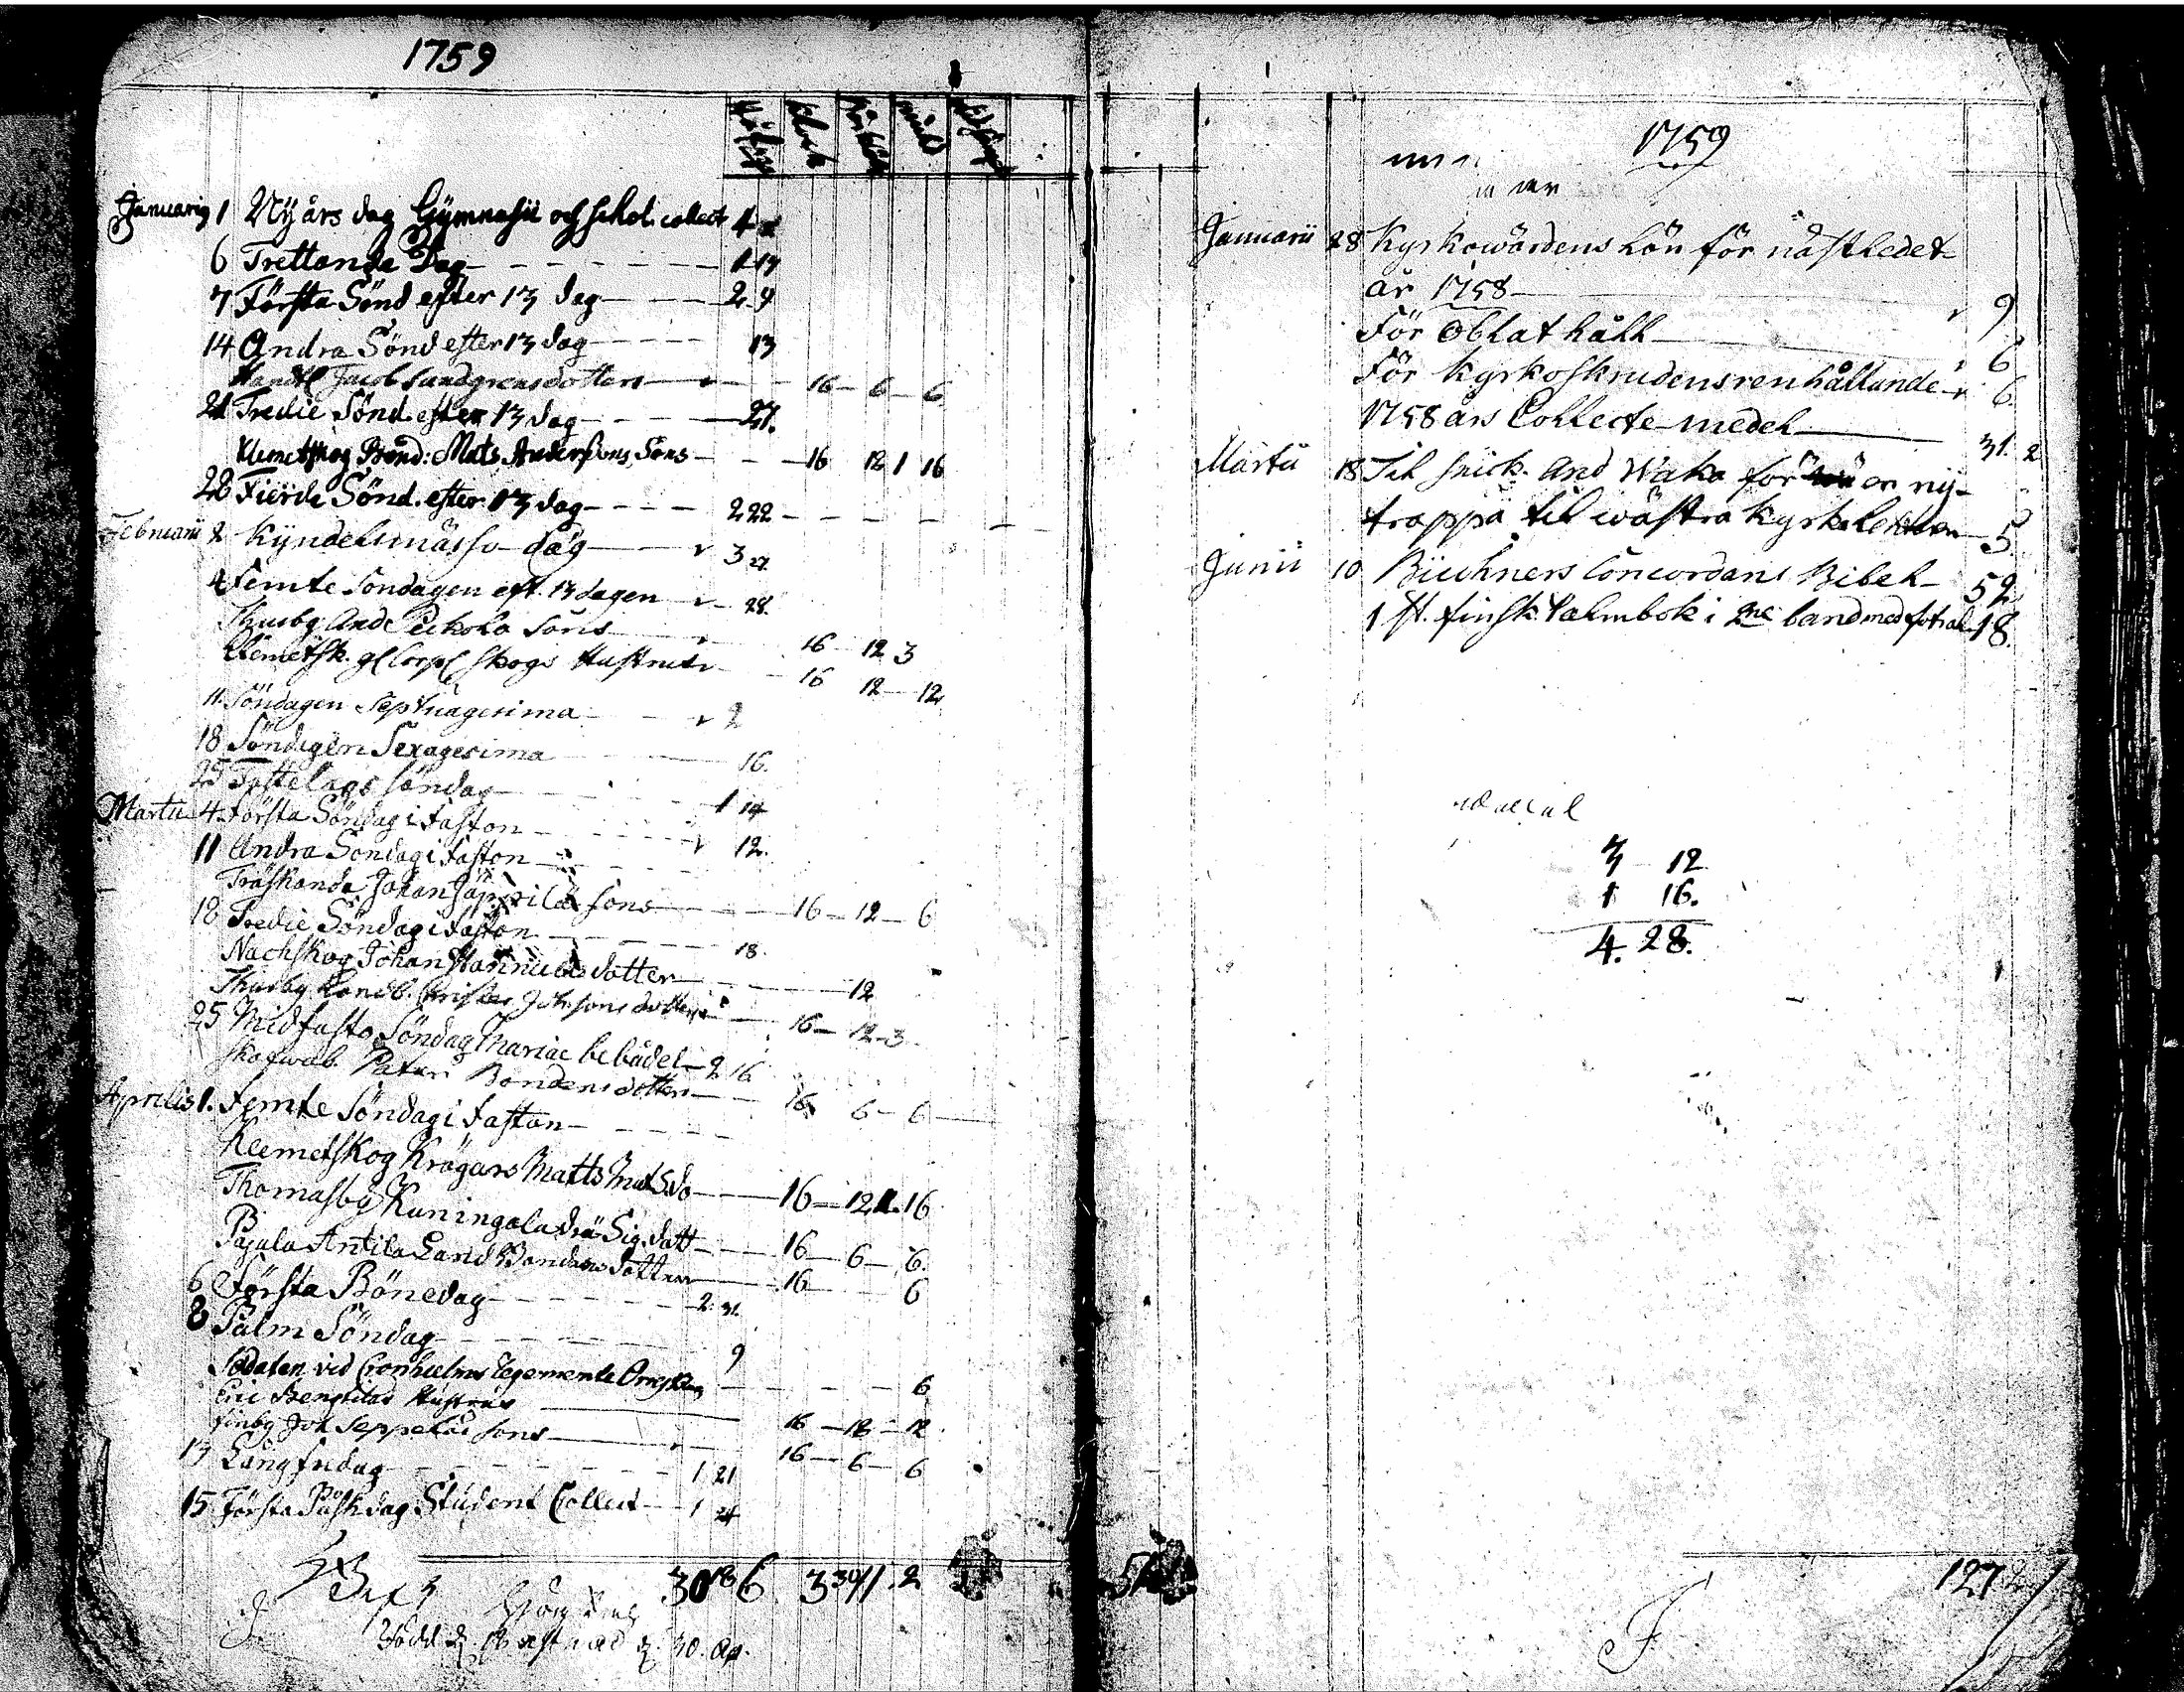 1759
Januarij 1 Nÿårs dag Gÿmnasii och schol. collect 4
6 Trettonde Dag 1 13
7 Första Sönd efter 13 dag 2 9
14 Andra Sönd efter 13 dag 13
Handl Jacob Sundgrens dotters 16 6 6
21 Tredie Sönd. efter 13 dag 27.
Klemetskog Bönd: Mats Anderssons Sons 16 12 1 16
28 Fierde Sönd. efter 13 dag 2 22
Februarii 2 Kyndelsmässo dag 3 27.
4 Femte Söndagen eft. 13 dagen 28.
And Peckola Sons 16 12 3
Klemetsk. gl Corpl Skogs Hustrus 16 12 12
11. Söndagen Septuagesima 2
18 Söndagen Sexagesima 16.
25 Fastelags söndag 1 14
Martii 4. Första Söndag i Faston 12.
11 Andra Söndag i Faston
Träskända Johan sons 16 12 6
18 Tredie Söndag i Faston 18.
Nachskog Johan Hannulas dotter 12
Landb. Christer Johansons dotters 16 12 3
25 Midfasto Söndag Mariae bebådel 2 16
Bondens dotters 16 6 6
Aprilis 1. Femte Söndag i Faston
Klemetskog Krögars Matts Mats do 16 12 1. 16
Thomasby Kuningala Sig. datt 16 6 6.
Pajula Antila Land Bondens dotter 16 6
6 Första Bönedag 2. 31.
8 Palm Söndag 9
Soldaten vid Cronhielms Regemente 6
Eric Bengtilas Hustrus 16 12 12
Finby Joh Seppeläs sons 16 6 6
13 Långfredag 1 21
15 Första Påskdag Student Collect 1 24
30 18 6 3 30 11. 2
30. Ap.
1759
Januarii 28 Kyrkowärdens Lön för nästledet
år 1758 9
För Oblat håll 6
För Kyrkoskrudens renhållande 6.
1758 års Collecte medel 31. 2
Martii 18 Til snick. And Waka för en nÿ
trappa til wästra Kyrkolechtaren 5
Junii 10 Büchners Concordans Bibel 52
1 st. finsk Psalmbok i 2ne band med fotral 18.
3 12
1 16.
4. 28.
51
127 2